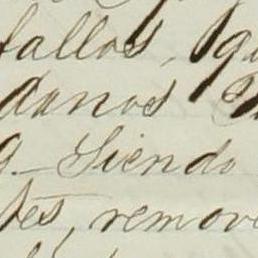 fallos, qu
danos
g_ Siendo
tes, remove